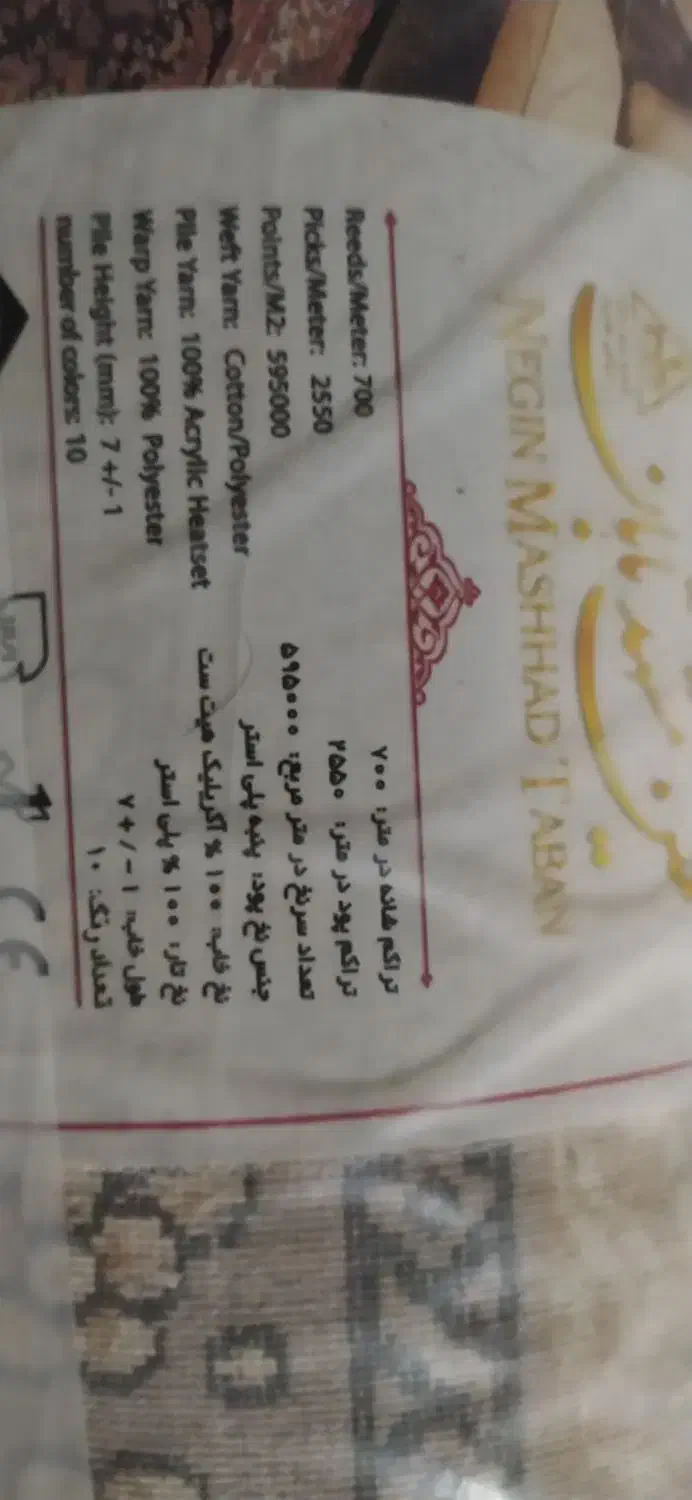 نگین مشهد تابان
NEGIN MASHHAD TABAN
Reeds/Meter: 700
Picks/Meter: 2550
Points/M2: 595000
Weft Yarn: Cotton/Polyester
Pile Yarn: 100% Acrylic Heatset
Warp Yarn: 100% Polyester
Pile Height (mm): 7 +/- 1
number of colors: 10
تراکم شانه در متر: ۷۰۰
تراکم پود در متر: ۲۵۵۰
تعداد سرنخ در متر مربع: ۵۹۵۰۰۰
جنس نخ پود: پنبه پلی استر
نخ خاب: ۱۰۰ % آکریلیک هیت ست
نخ تار: ۱۰۰ % پلی استر
طول خاب: ۱ - / + ۷
تعداد رنگ: ۱۰
CE